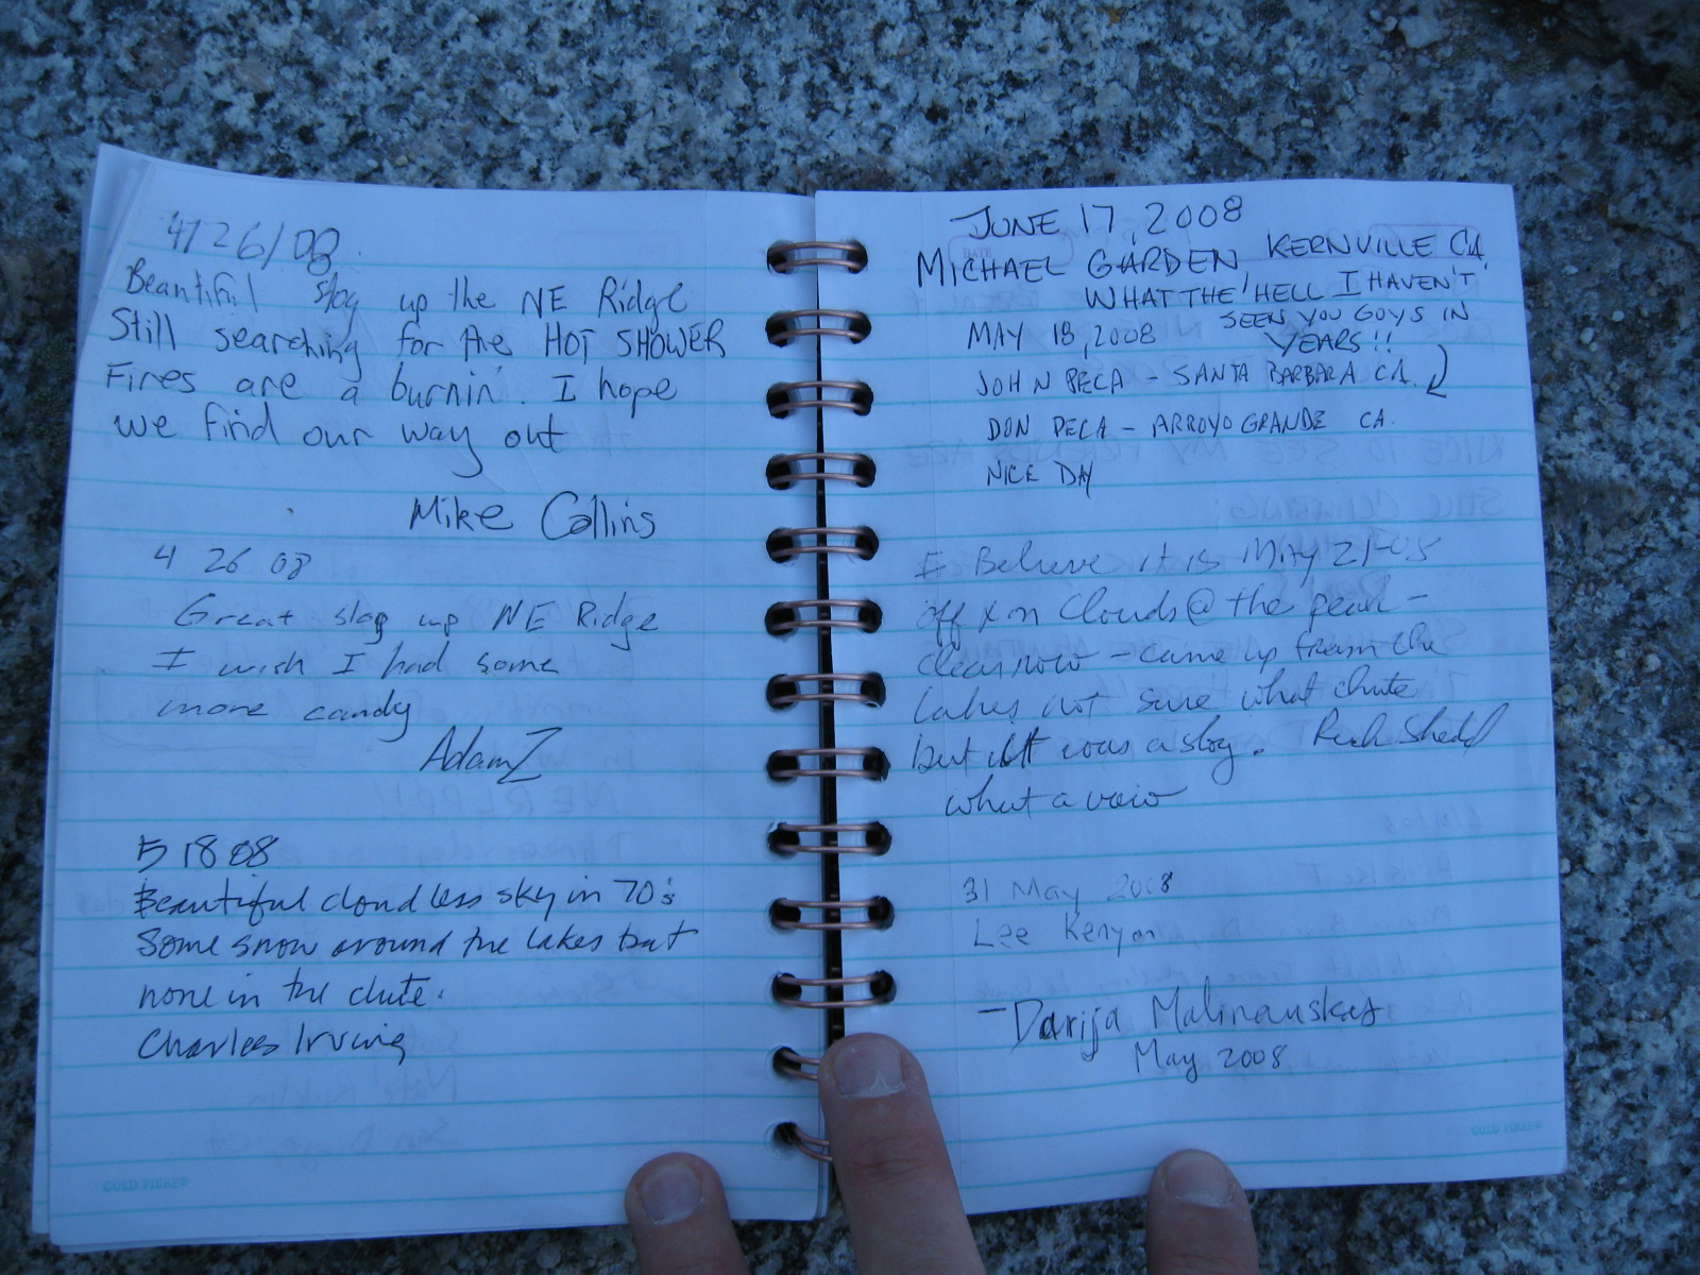 4/26/08
Beautiful slog up the NE Ridge
Still searching for the HOT SHOWER
Fires are a burnin. I hope
we find our way out
Mike Collins
4 26 08
Great slog up NE Ridge
I wish I had some
more candy
AdamZ
5 18 08
Beautiful cloudless sky in 70's
Some snow around the lakes but
none in the chute.
Charles Irving
GOLD FIBRE®
JUNE 17, 2008
MICHAEL GARDEN KERNVILLE CA.
WHAT THE HELL I HAVEN'T
SEEN YOU GUYS IN
YEARS!!
MAY 18, 2008
JOHN PECA - SANTA BARBARA CA.
DON PECA - ARROYO GRANDE CA.
NICE DAY
I Believe it is May 21-08
off & on Clouds @ the peak -
clear now - came up from the
Lakes not sure what chute
but it was a slog. Shedd
what a
31 May 2008
Lee Kenyon
- Darija Malinauskas
May 2008
GOLD FIBRE®